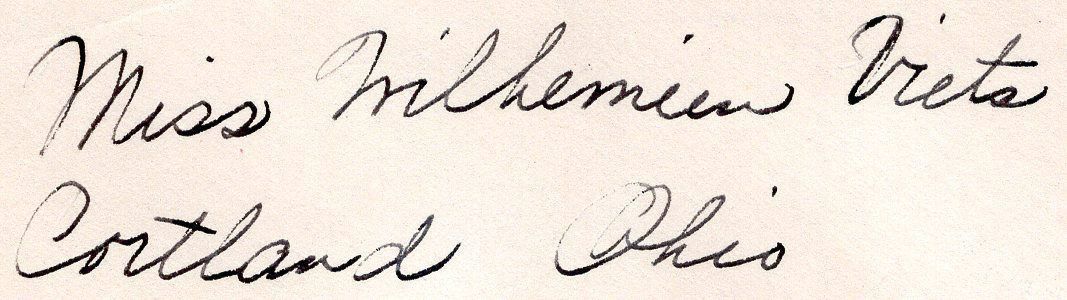 Miss Wilhemien Viets
Cortland Ohio